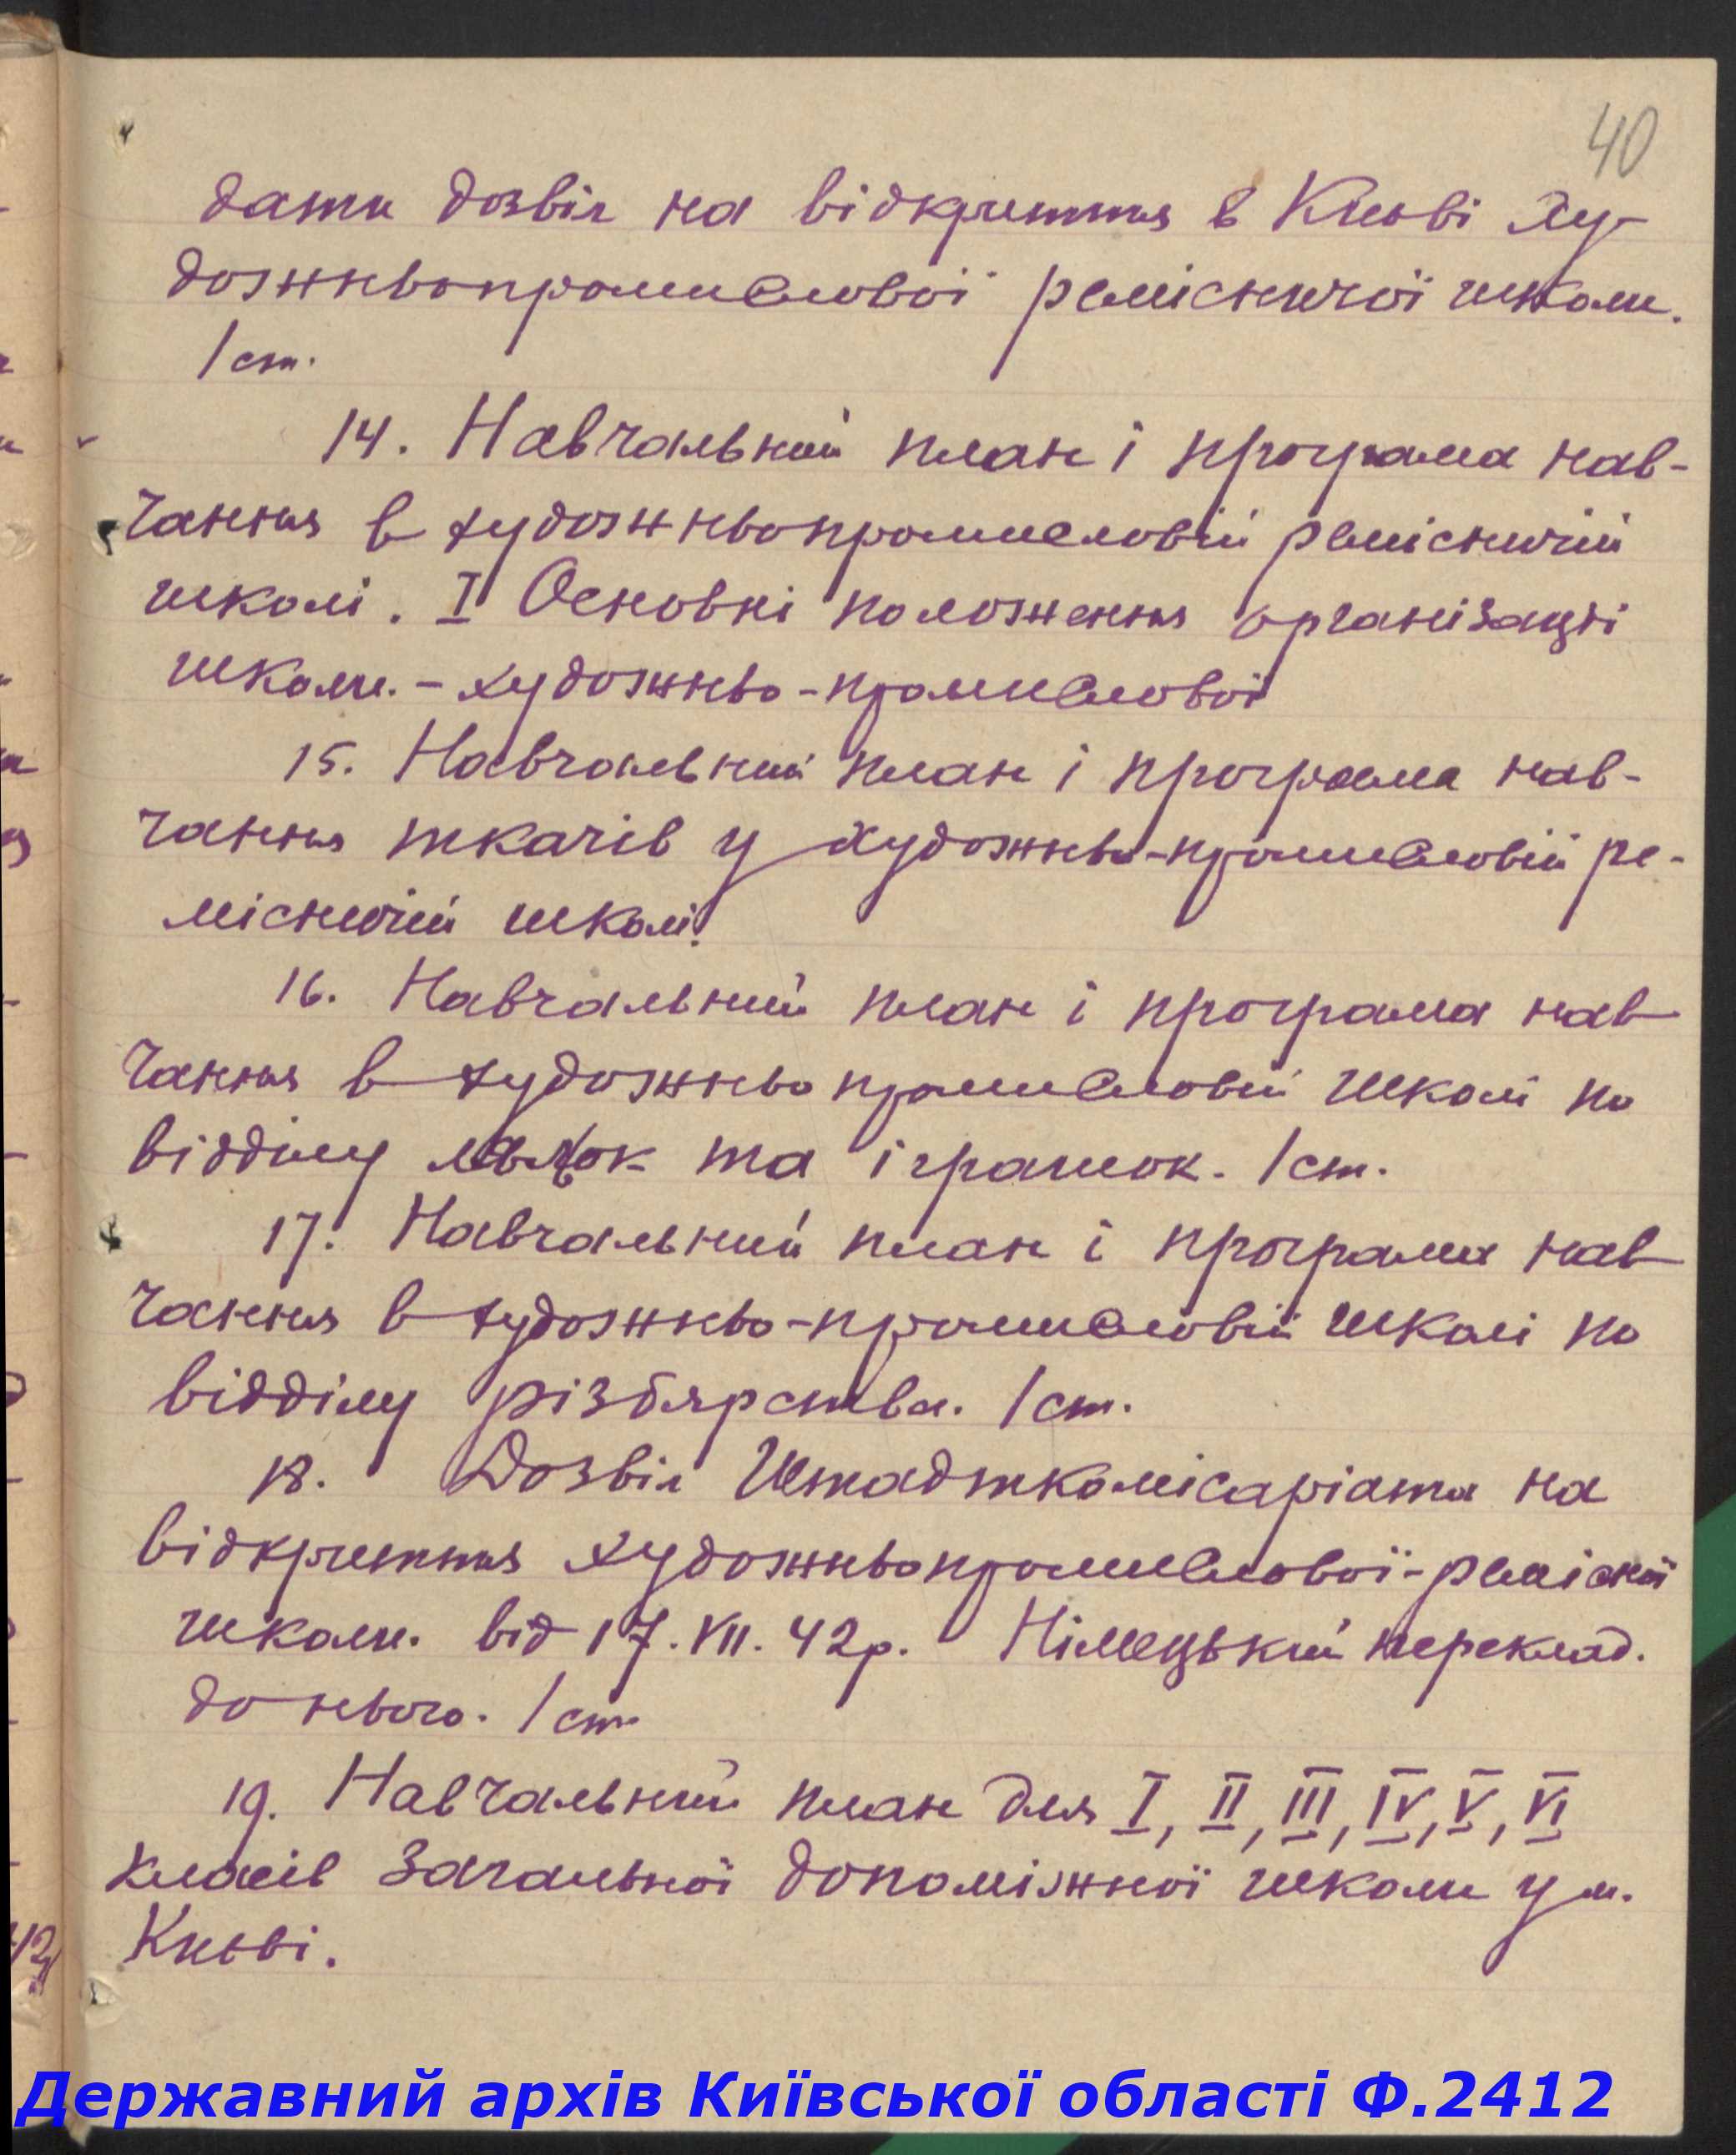 40
дати дозвіл на відкриття в Києві Ху-
дожньопромислової ремісничої школи.
1 ст.
14. Навчальний план і програма нав-
чання в художньопромисловій ремісничій
школі. I Основні положення організації
школи. - художньо-промислової
15. Навчальний план і програма нав-
чання ткачів у художньо-промисловій ре-
місничій школі.
16. Навчальний план і програма нав
чання в художньо промисловій школі по
відділу ляльок та іграшок. 1 ст.
17. Навчальний план і програма нав
чання в художньо-промисловій школі по
відділу різбярства. 1 ст.
18. Дозвіл Штадткомісаріата на
відкриття художньопромислової-
школи. від 17.VII.42р. Німецький переклад.
до нього. 1 ст.
19. Навчальний план для I, II, III, IV, V, VI
класів загальної допоміжної школи у м.
Києві.
Державний архів Київської області Ф.2412